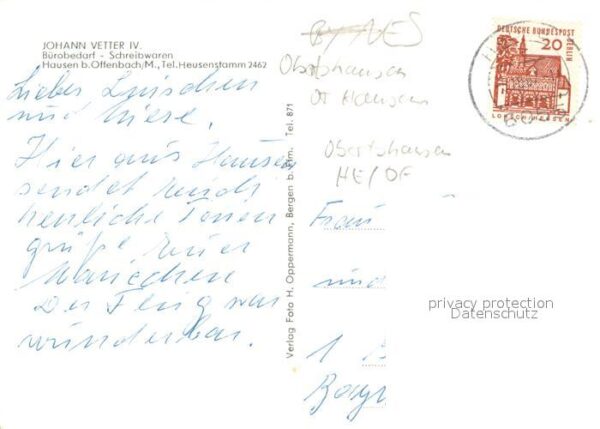 JOHANN VETTER IV.
Bürobedarf - Schreibwaren
Hausen b.Offenbach/M., Tel. Heusenstamm 2462
Lieber Luischen
und
Hier aus Hausen
sendet euch
herzliche
grüße euer
Mariechen
Der Flug war
wunderbar.
Verlag Foto H. Oppermann, Bergen b. Ffm. Tel. 871
Obertshausen
OT Hausen
Obertshausen
HE/OF
DEUTSCHE BUNDESPOST
BERLIN
20
LORSCH/HESSEN
Frau
und
1
privacy protection
Datenschutz